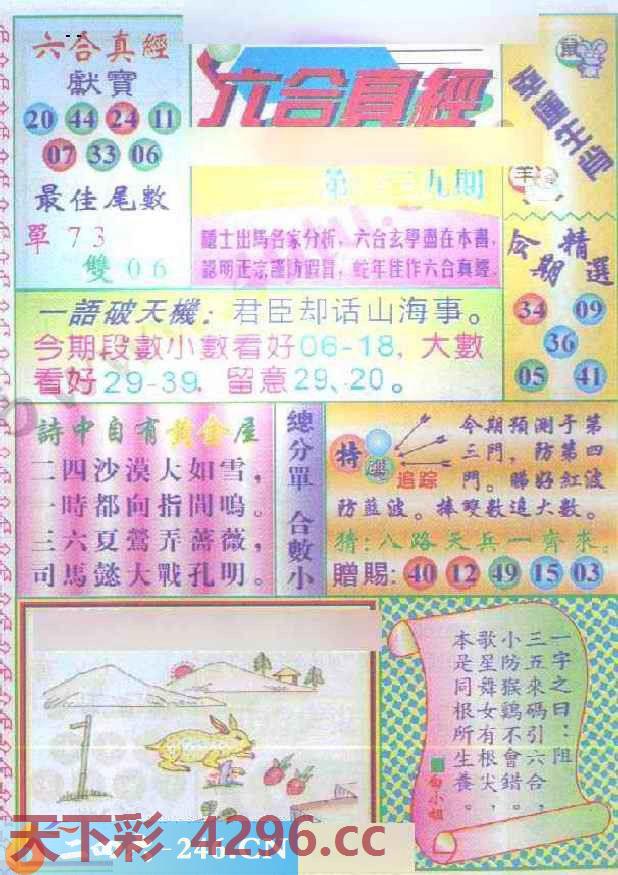 六合真經
獻寶
20 44 24 11
07 33 06
最佳尾數
單 7 3
雙 0 6
六合真經
九期
隱士出馬各家分析，六合玄學盡在本書，
認明正宗謹防假冒，蛇年佳作六合真經。
鼠
幸運生肖
羊
今期精選
34 09
36
05 41
一語破天機：君臣却话山海事。
今期段數小數看好06-18，大數
看好29-39，留意29、20。
詩中自有黃金屋
二四沙漠大如雪，
一時都向指間鳴。
三六夏鶯弄薔薇，
司馬懿大戰孔明。
總分單 合數小
特碼追踪
今期預測于第
三門，防第四
門。睇好紅波
防藍波。捧雙數追大數。
猜：八路天兵一齊來。
贈賜：40 12 49 15 03
一字之曰：阻
三五來碼引六合，
小防猴鷄不會錯。
歌星舞女有根尖，
本是同根所生養。
白小姐
天下彩 4296.cc
246.CN